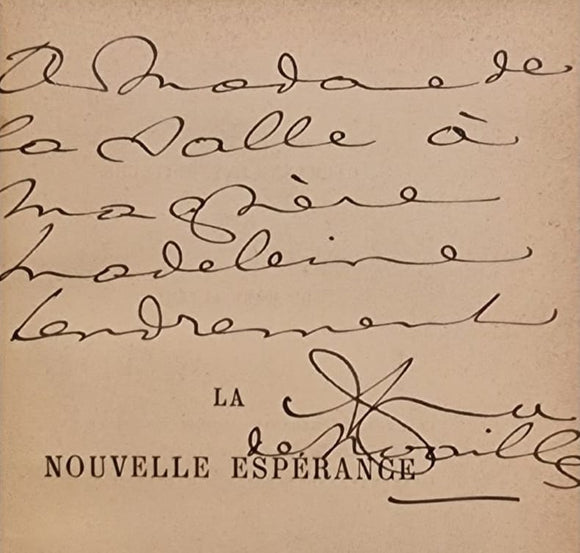 A Madame de
la Salle à
ma chère
Madeleine
tendrement
Anna
de Noailles
LA
NOUVELLE ESPÉRANCE